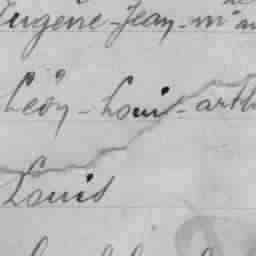 Eugène-Jean-m
Léon-Louis-arth
Louis